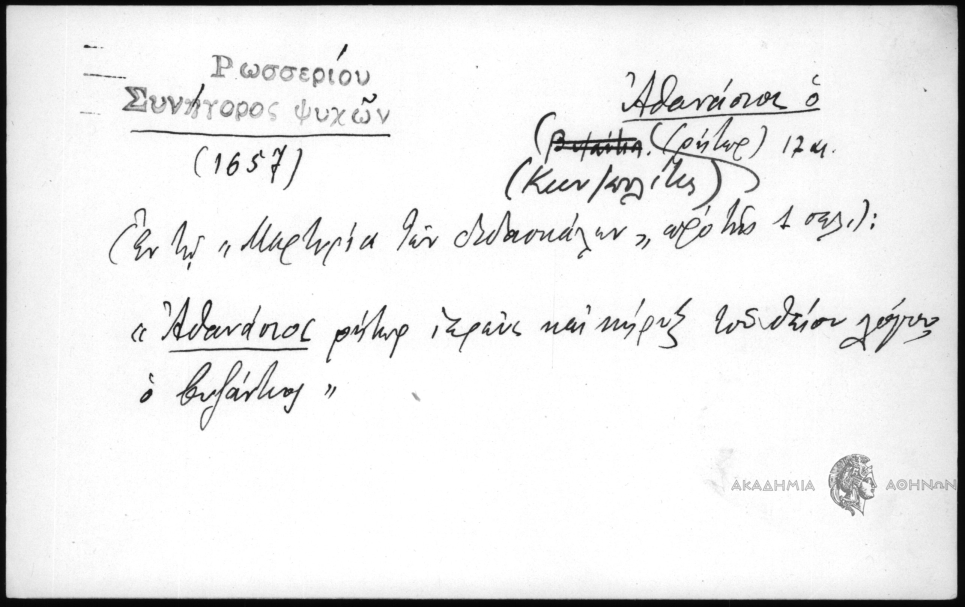 Ρωσσερίου
Συνήγορος ψυχῶν
(1657)
Ἀθανάσιος ὁ
(ῥήτωρ) 17 αι.
(Κων/πολίτης)
(Ἐν τῇ „Μαρτυρία τῶν διδασκάλων„ πρὸ τῆς 1 σελ.):
„Ἀθανάσιος ρήτωρ ἱερεὺς καὶ κήρυξ τοῦ θείου λόγου
ὁ βυζάντιος„
ΑΚΑΔΗΜΙΑ ΑΘΗΝΩΝ